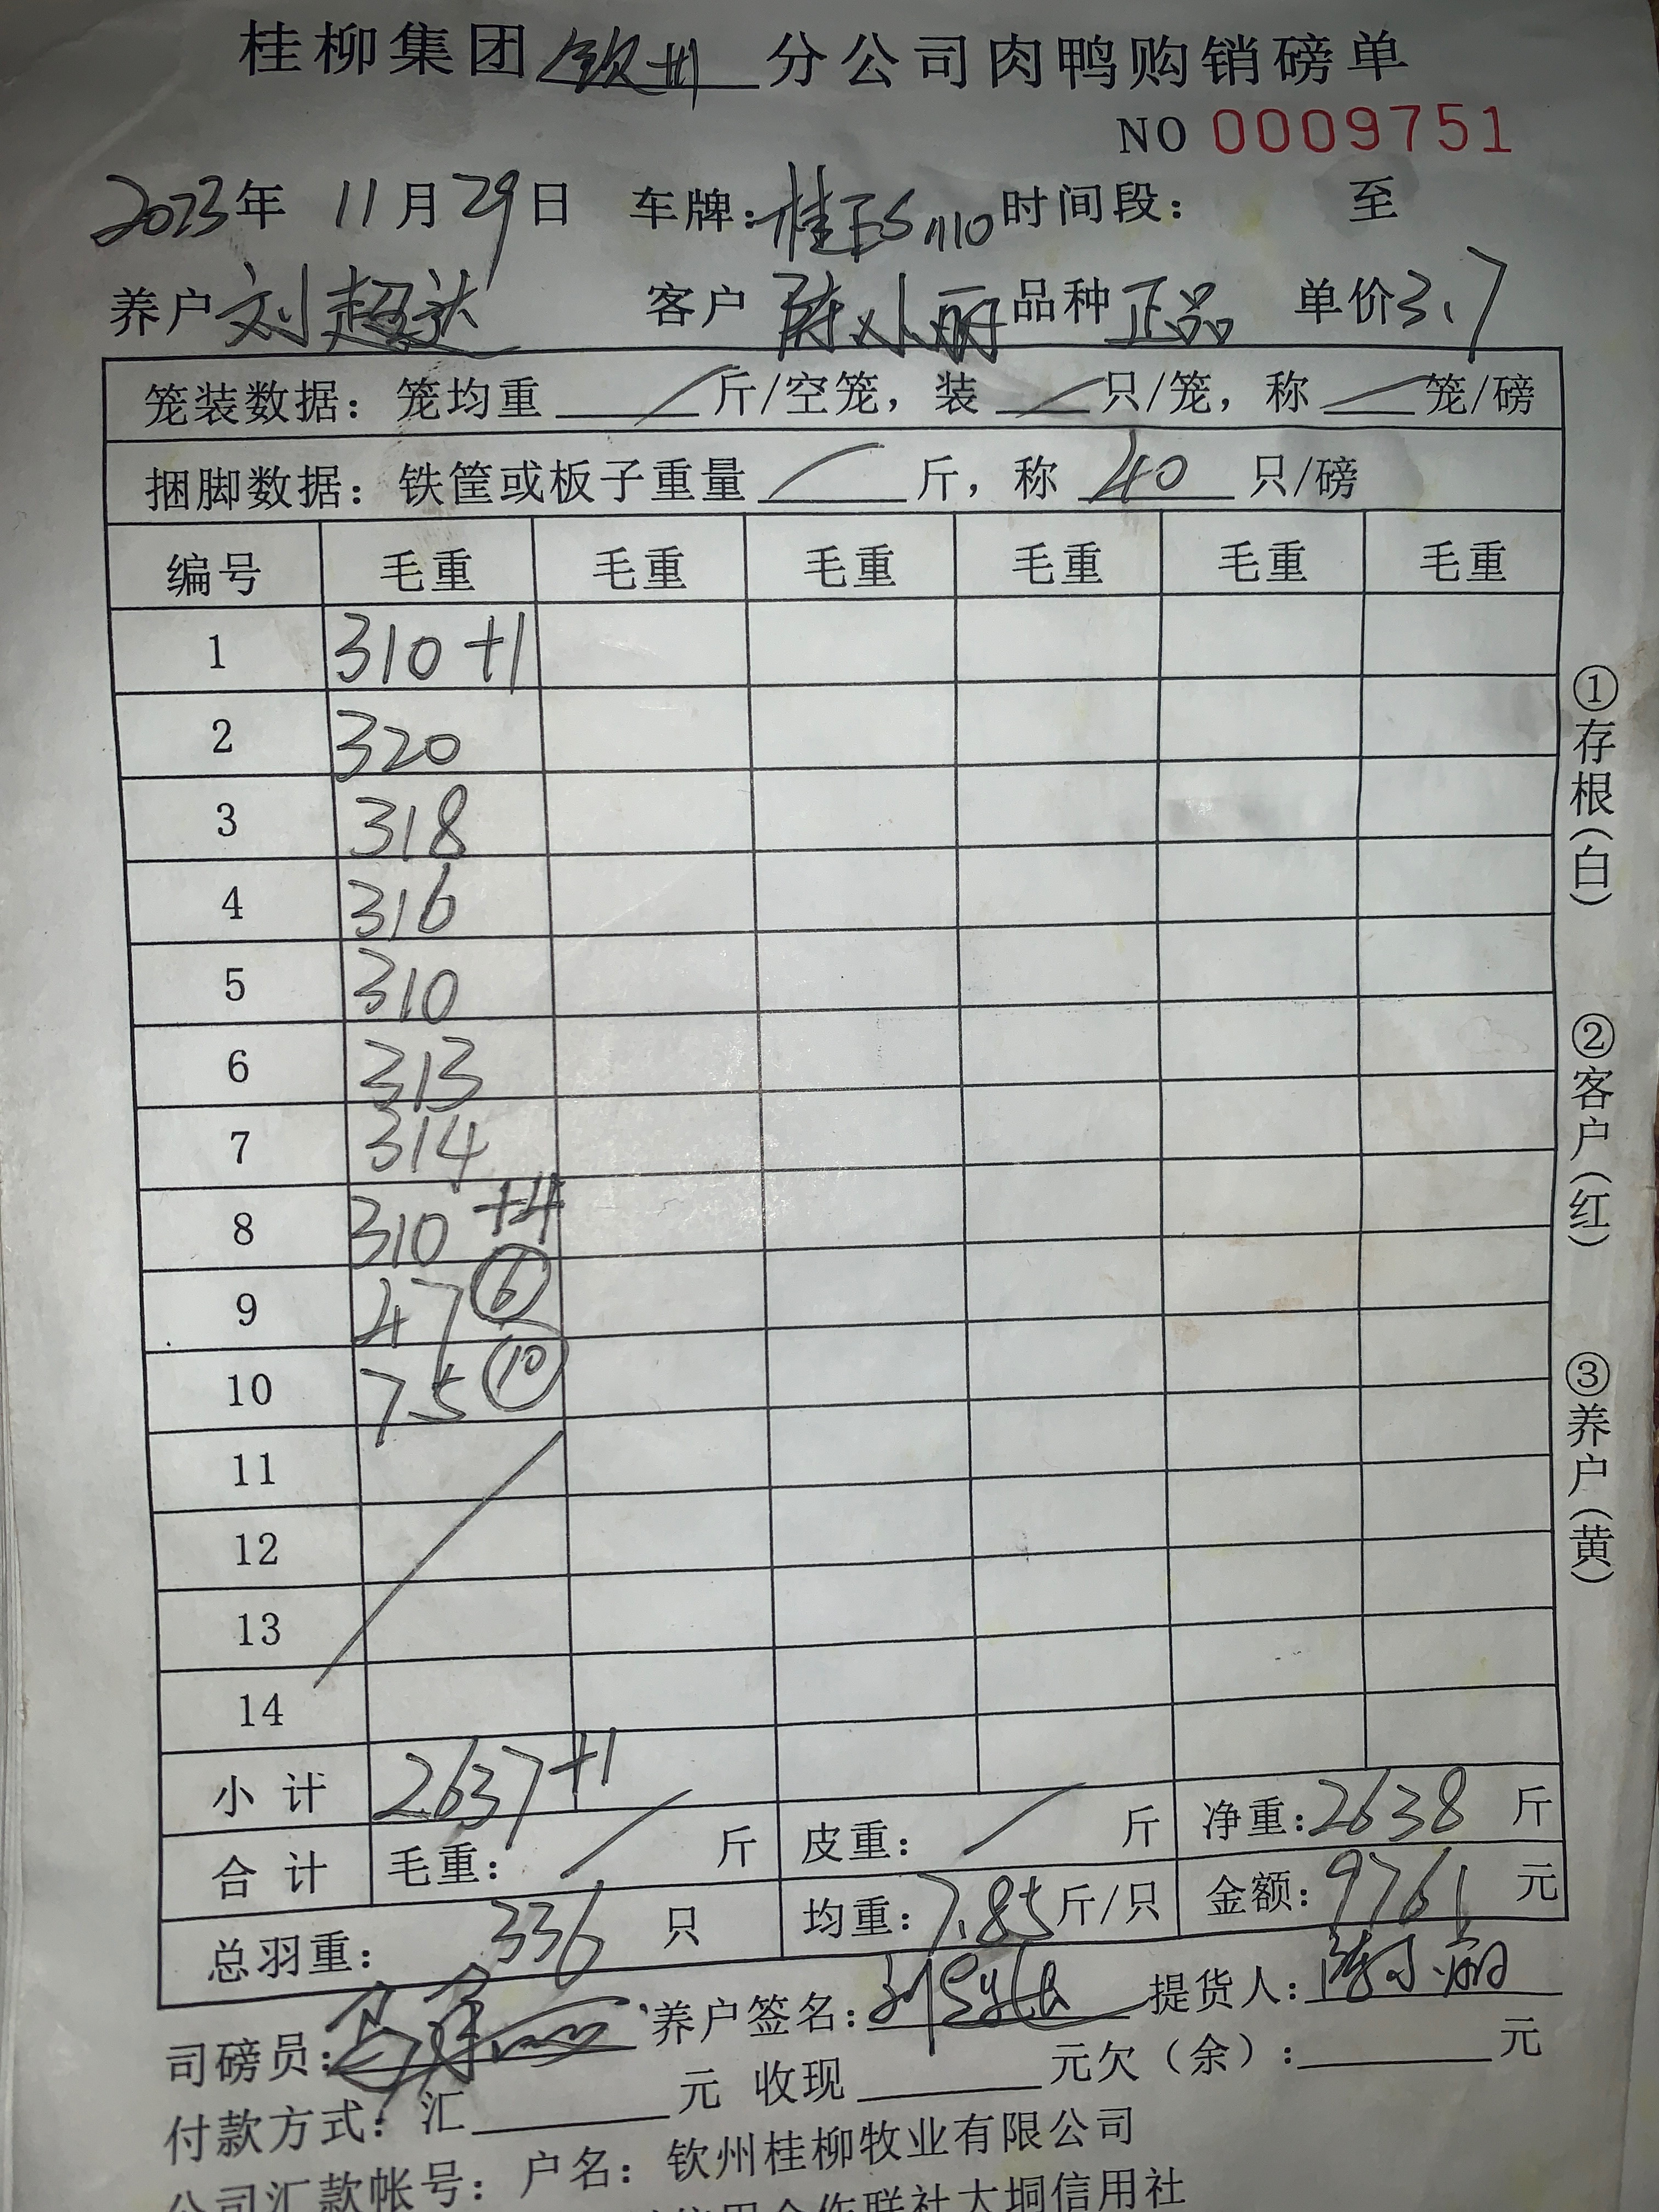 桂柳集团钦州分公司肉鸭购销磅单
NO 0009751
2023年 11月29日 车牌:桂 时间段: 至
养户刘超达 客户 陈小丽 品种 正品 单价3.7
笼装数据: 笼均重 / 斤/空笼, 装 / 只/笼, 称 / 笼/磅
捆脚数据: 铁筐或板子重量 / 斤, 称 40 只/磅
编号 毛重 毛重 毛重 毛重 毛重 毛重
1 310+1
2 320
3 318
4 316
5 310
6 313
7 314
8 310 +4
9 47 ⑥
10 75 ⑩
11
12
13
14
小 计 2637+1
合 计 毛重: / 斤 皮重: / 斤 净重:2638 斤
总羽重: 336 只 均重:7.85斤/只 金额:9761 元
司磅员: 养户签名:刘超达 提货人:陈小丽
付款方式: 汇 元 收现 元欠(余): 元
公司汇款帐号: 户名: 钦州桂柳牧业有限公司
信用合作联社大垌信用社
①存根(白)
②客户(红)
③养户(黄)